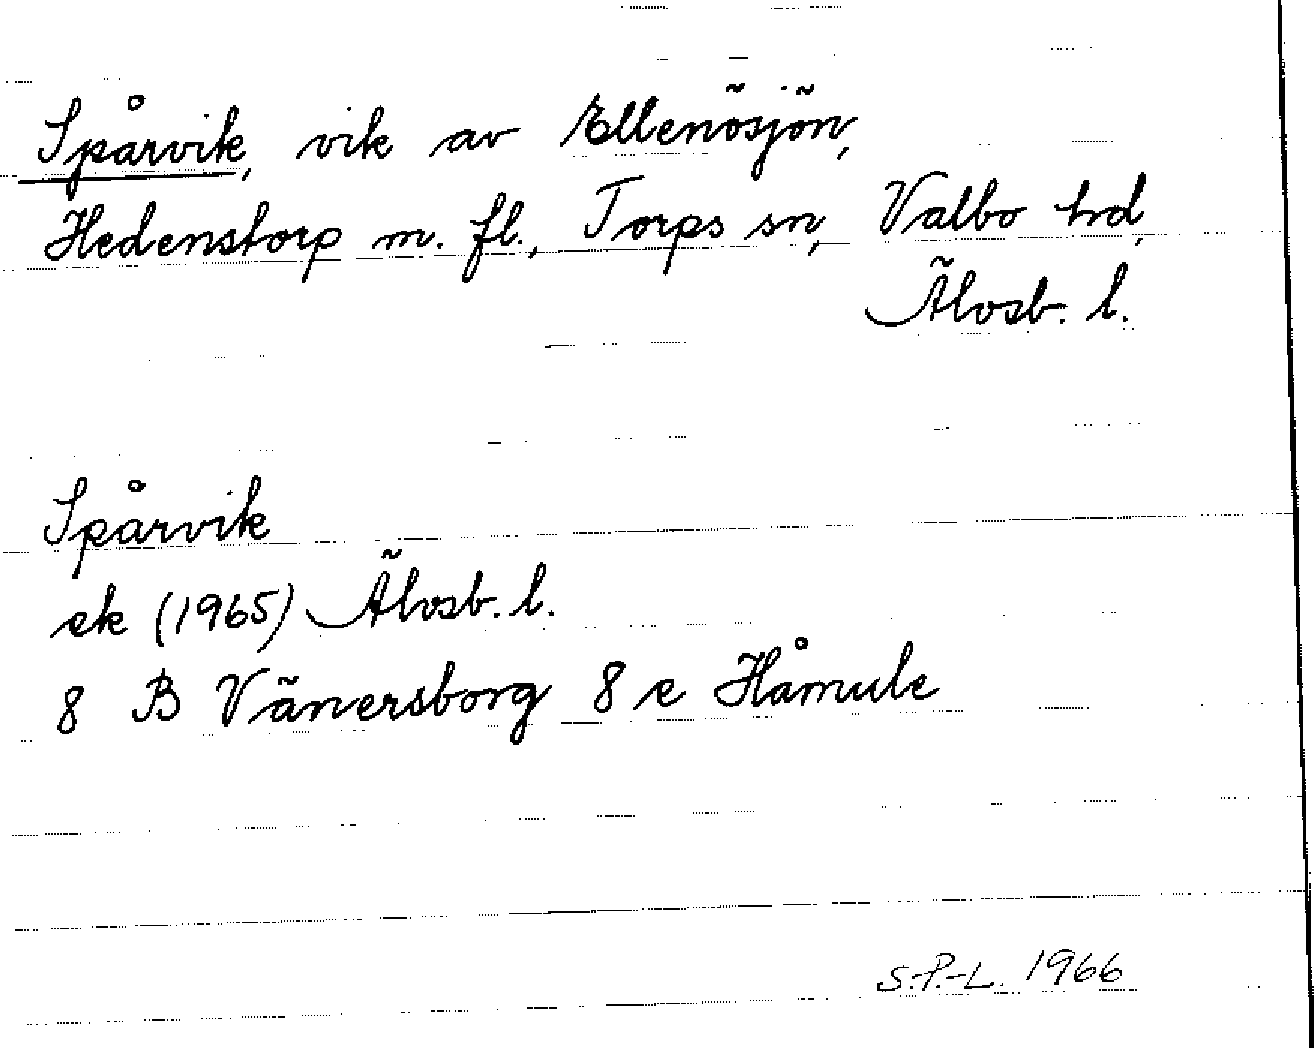 Spårvik, vik av Ellenösjön,
Hedenstorp m. fl., Torps sn, Valbo hd,
Älvsb. l.
Spårvik
ek (1965) Älvsb. l.
8 B Vänersborg 8 e Håmule
S.-P.-L. 1966